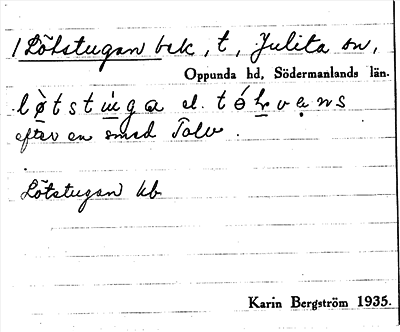 1 Lötstugan bsk, t, Julita sn,
Oppunda hd, Södermanlands län.
lø̀tstɯ̀ga el. tólvans
efter en smed Tolv.
Lötstugan kb
Karin Bergström 1935.